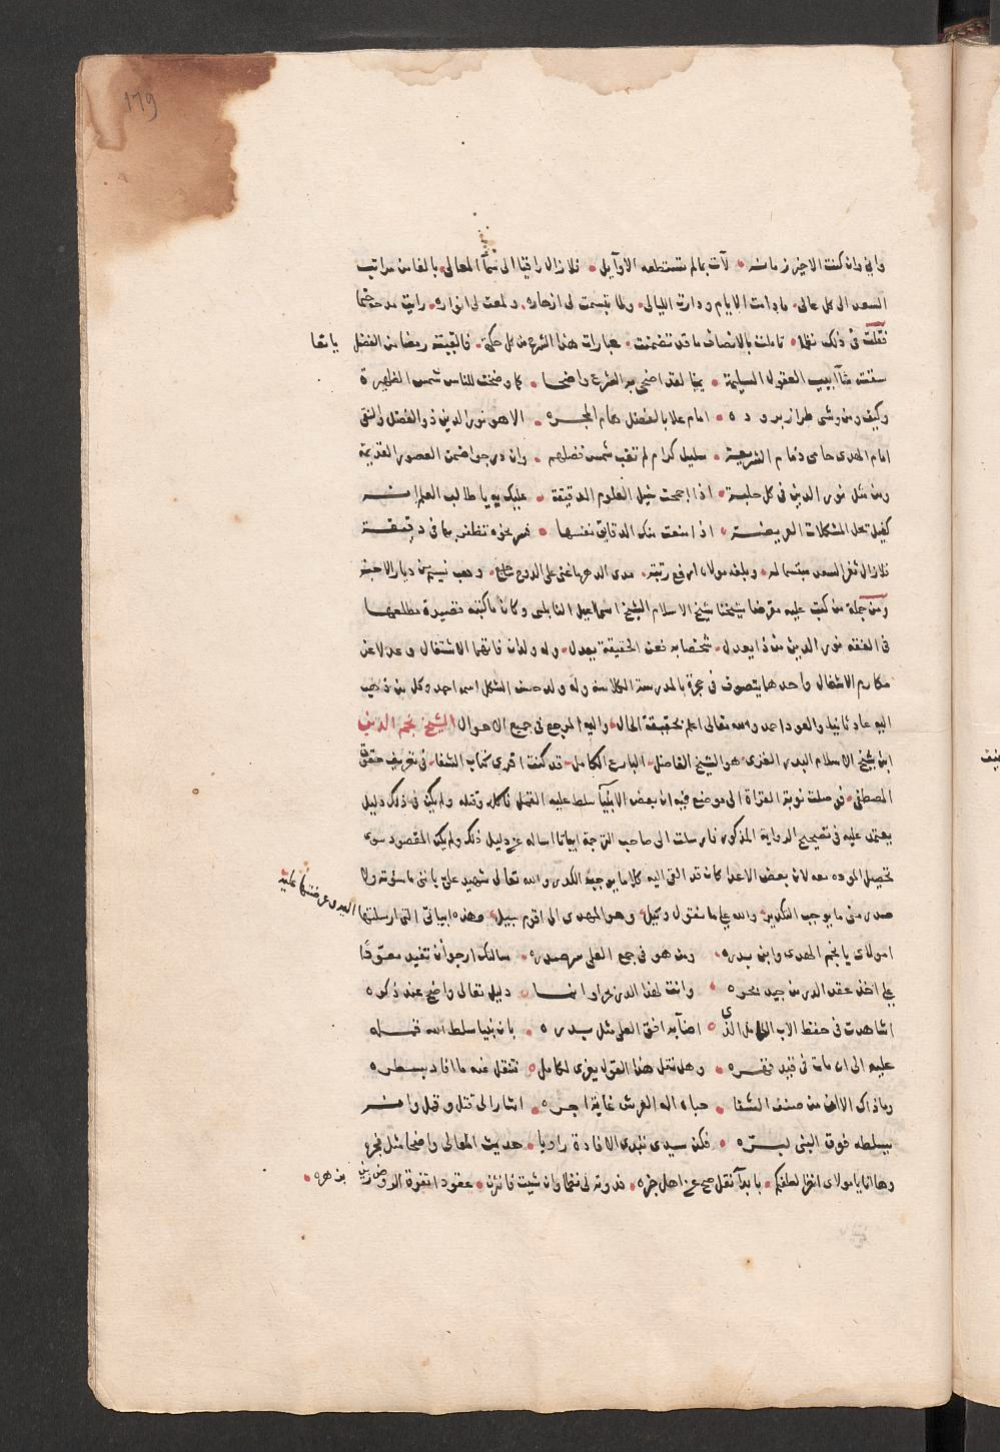 179
واني وان كنت الاخير زمانه • لآت بما لم تستطعه الاوآيل • فلا زال راقيا الى سمآ المعالي • بالغا من مراتب
السعد الى كل عالي • ما دامت الايام ودارت الليالي • ولما تبسمت لي ازهاره • ولمعت لي انواره •
فقلت في ذلك نظما • تاملت بالانصاف ما قد تضمنت • عبارات هذا الشرع من كل حكمة • فالقيته روضا من الفضل يانعا
سقته شآبيب العقول السليمة • لقد اضحى به الشرع واضحا • كما وضحت للناس شمس الظهيرة
وكيف ومن وشى طراز بروده • امام علا بالفضل هام المجره • الا هو نور الدين ذو الفضل والتقى
امام الهدى حامي ذمام الشريعة • سليل كرام لم تغب شمس فضلهم • وان درجوا ضمن العصور القديمة
ومن مثل نور الدين في كل حلبة • اذا خيل العلوم الدقيقة • عليك به يا طالب العلم انه
كفيل بحل المشكلات العويصة • اذا منعت منك الدقايق نفسها • نحوه تظفر بما في دقيقة
فلا زال ثغر السعد مبتسما له • وبلغه مولاه ارفع رتبة • مدى الدهر ما غنى على الدوح • وهب نسيم من ديار الاحبة
ومن جملة من كتب عليه مقرضا شيخنا شيخ الاسلام الشيخ اسماعيل النابلسي وكان ما كتبه قصيرة مطلعها
في الفقه نور الدين من ذا يعدل • شخصا به نحو الحقيقة يعدل • وله ولدان فاتهما الاشتغال وعدلا عن
مكارم الاشغال واحدهما يتصوف في حجرة بالمدرسة الكلاسه وله ولد حسن الشكل اسمه احمد وكل من ذهب
اليه عاد ثانيا والعود احمد والله تعالى اعلم بحقيقة الحال • واليه المرجع في جميع الاحوال الشيخ نجم الدين
ابن شيخ الاسلام البدر الغزي هو الشيخ الفاضل • البارع الكامل • قد كنت اقري كتاب الشفا • في تعريف حقوق
المصطفى • فوصلت نوبة القرآة الى موضع فيه ان بعض الانبيآ سلط عليه القمل فاكله وقتله ولم يكن في ذلك دليل
يعتمد عليه في تصحيح الرواية المذكور فارسلت الى صاحب الترجمة ابياتا اساله عن دليل ذلك ولم يكن المقصود سوى
تحصيل الموده معه لان بعض الاعدا كان قد القى اليه كلاما يوجب الكدر والله تعالى شهيد علي بانني ما سؤته ولا
صدر مني ما يوجب التكدير • والله على ما نقول وكيل • وهو المهدى الى اقوم سبيل • وهذه ابياتي التي ارسلتها اليه عرضتها عليه
امولاى يا نجم الهدى وابن بدره • ومن هو في جمع العلى صدره • سالتك ارجو أن تفيد معوّدًا
على اخذ عقد الدر من جيد نحوه • وانت لهذا الدر حوا وانما • دليل تعالى واضح عند ذكره
اشاهدت في حفظ الاب الكامل الذى • اضآ به افق العلى مثل بدره • بان نبيا سلط الله قمله
عليه الى ان مات في قيد فقره • وهل نقل هذا القول يعزى لكامل • فتنقل عنه ما افاد بسطره
وما ذاك الا ان من صنف الشفا • حباه اله العرش غاية اجره • اشار الى قتل وقبل وانه
يسلطه فوق النبي لسره • فكن سيدى نبدى الافادة راويا • حديث المعالى واضحا مثل فجره
وها انا يا مولاى انظر لطفكم • بابدآ نقل صح عن اهل خبره • فدونه لى نظما وان شيت فانثرن • عقودا تفوق الروض زين بزهره •